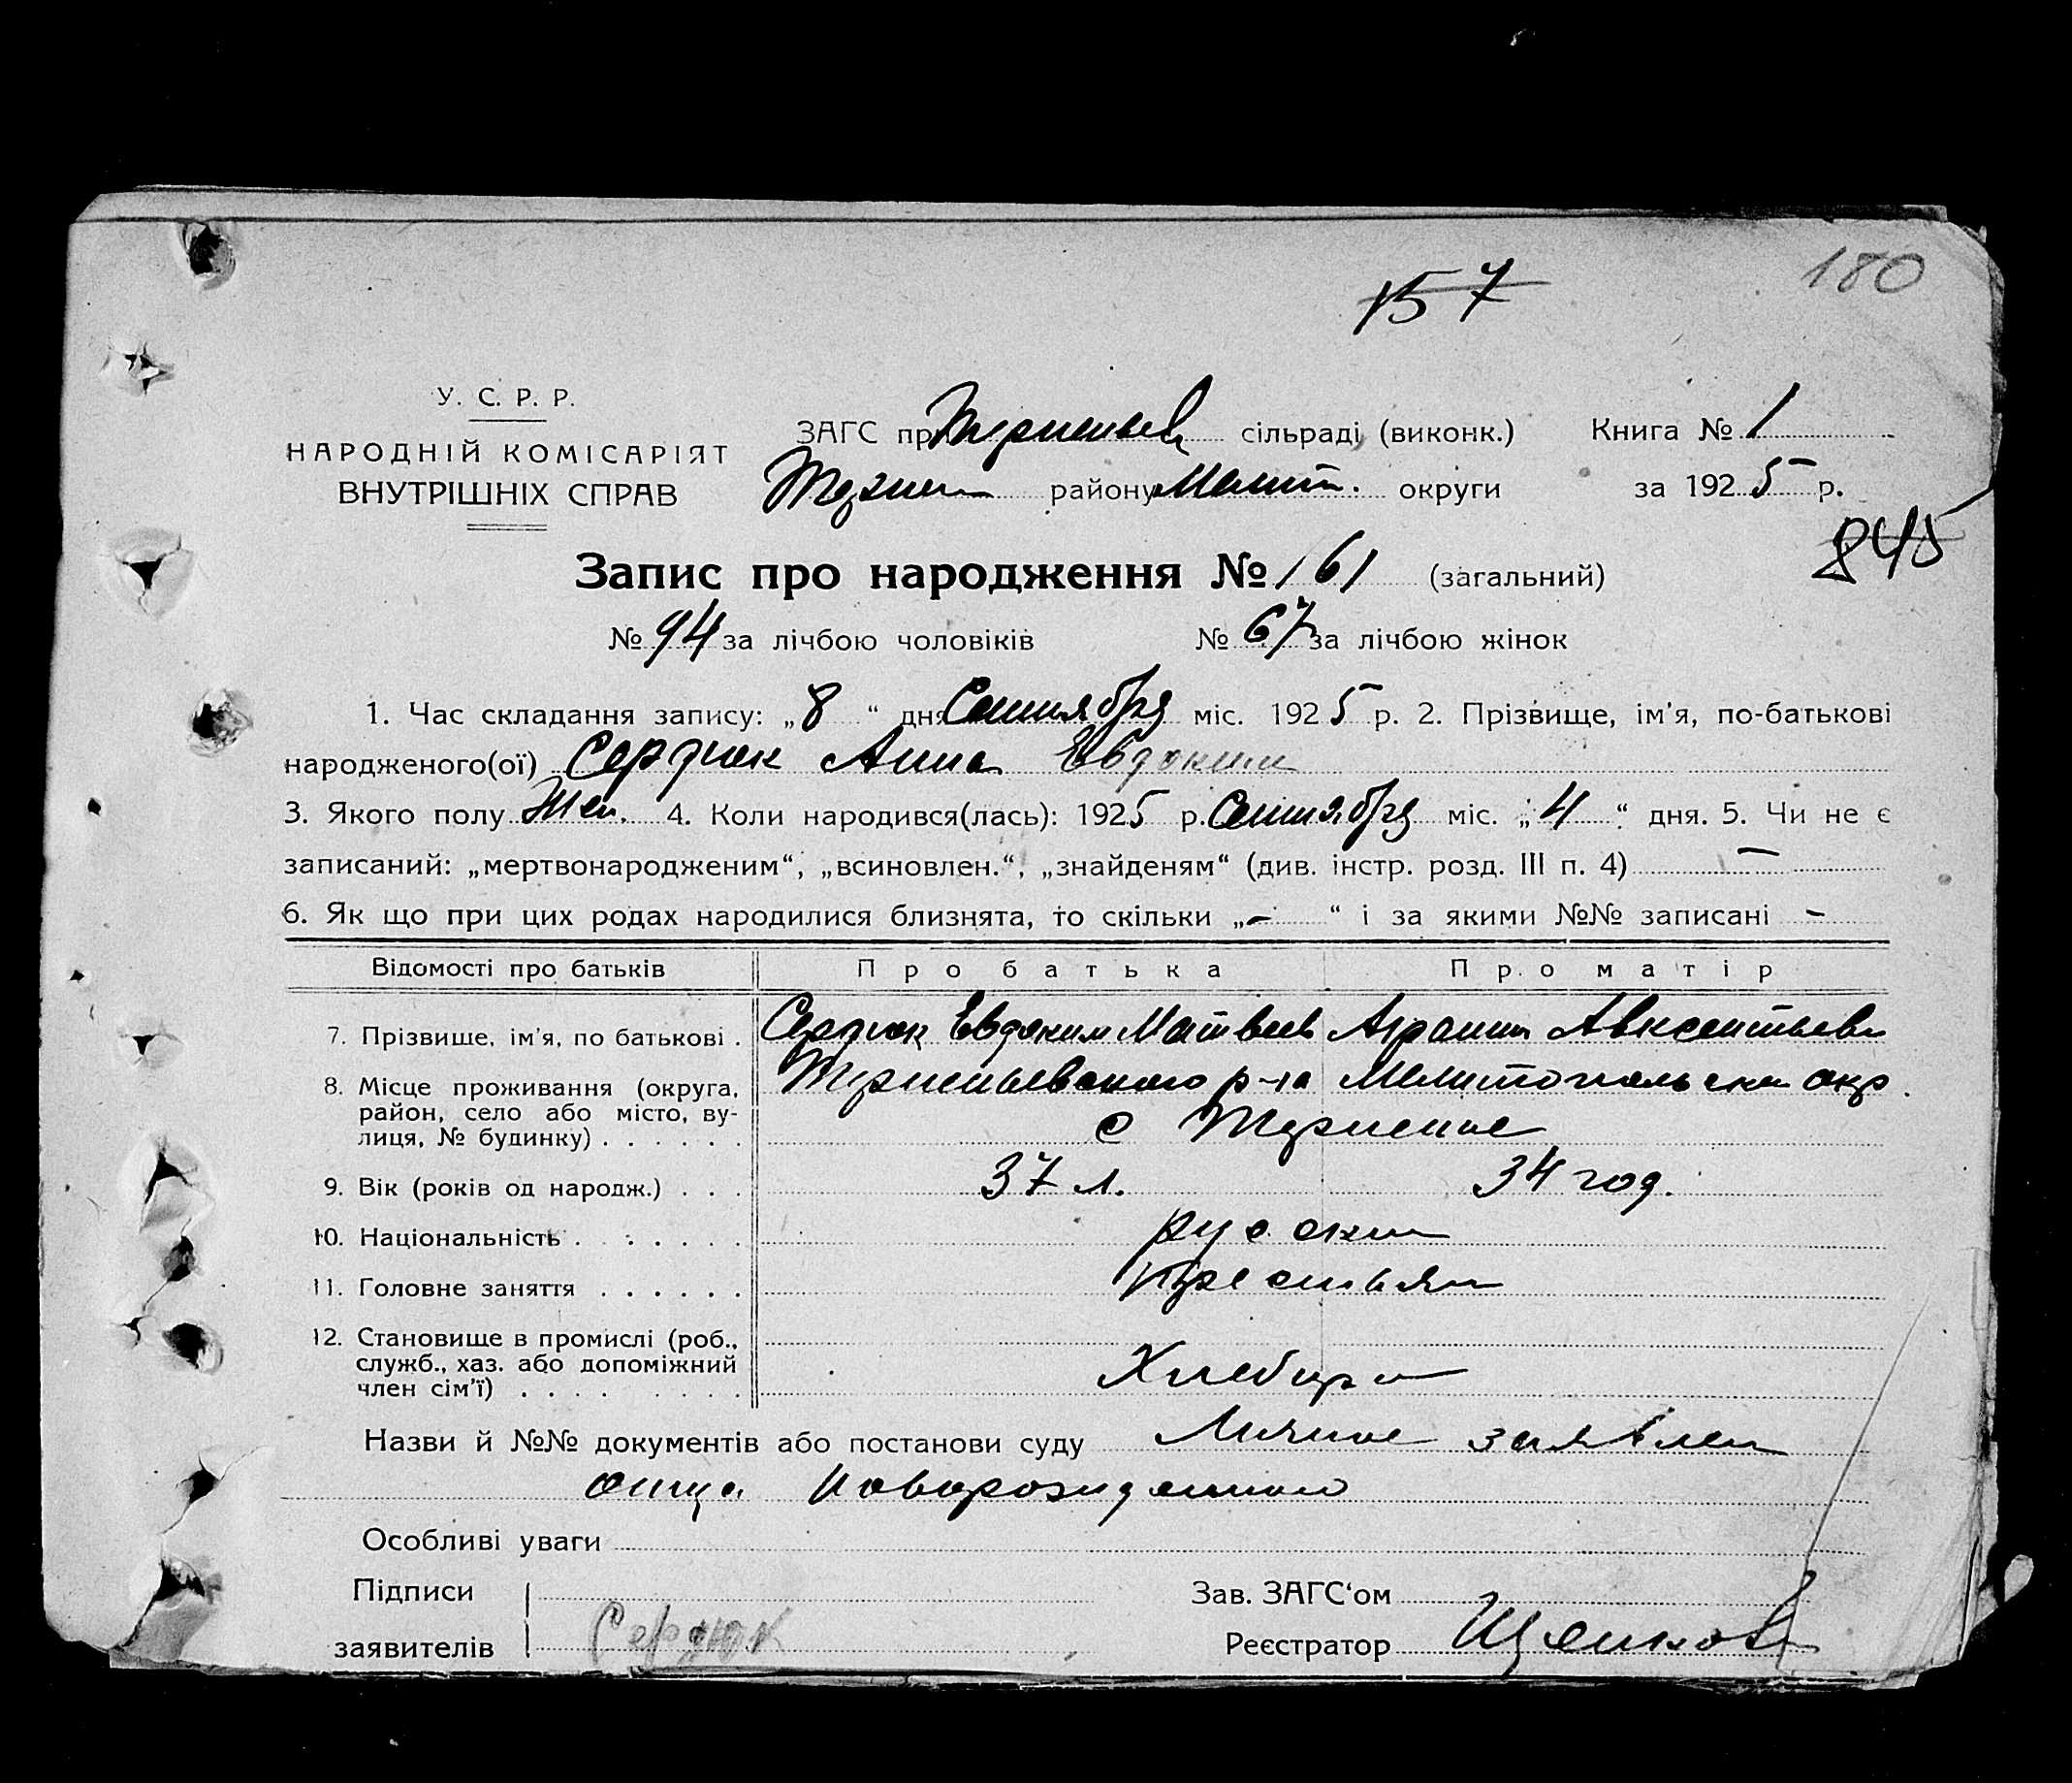 180
157
У. С. Р. Р.
НАРОДНІЙ КОМІСАРІЯТ
ВНУТРІШНІХ СПРАВ
ЗАГС при Терпеньев сільраді (виконк.) Книга № 1
Терпен району Мелит. округи за 1925 р.
845
Запис про народження № 161 (загальний)
№ 94 за лічбою чоловіків № 67 за лічбою жінок
1. Час складання запису: „8“ дня Сентября міс. 1925 р. 2. Прізвище, ім'я, по-батькові
народженого(ої) Сердюк Анна Евдоким
3. Якого полу Жен. 4. Коли народився(лась): 1925 р. Сентября міс. „4“ дня. 5. Чи не є
записаний: „мертвонародженим“, „всиновлен.“, „знайденям“ (див. інстр. розд. III п. 4) —
6. Як що при цих родах народилися близнята, то скільки „-“ і за якими №№ записані -
Відомості про батьків Про батька Про матір
7. Прізвище, ім'я, по батькові . Сердюк Евдоким Матвеев Агрипин Авксентьевн
8. Місце проживання (округа, Терпеньевского р-на Мелитопольскои окр.
район, село або місто, ву-
лиця, № будинку) . . . . . . с Терпение
9. Вік (років од народж.) . . . 37 л. 34 год.
10. Національність . . . . . . . русский
11. Головне заняття . . . . . . Крестьян
12. Становище в промислі (роб.,
служб., хаз. або допоміжний
член сім'ї) . . . . . . . . Хлебороб
Назви й №№ документів або постанови суду Личное заявлен
отца новорожденного
Особливі уваги
Підписи Зав. ЗАГС'ом
заявителів Сердюк Реєстратор